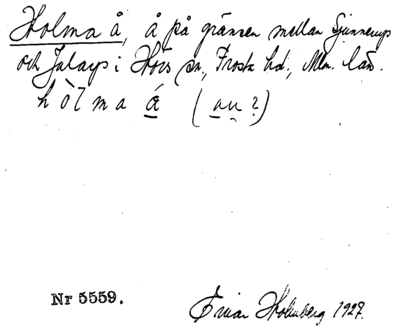 Holma å, å på gränsen mellan Sjunnerup
och Jularp i Hörs sn., Frosta hd., Mlm. län.
hòlma á (au ?)
Nr 5559.
Einar Holmberg 1927.